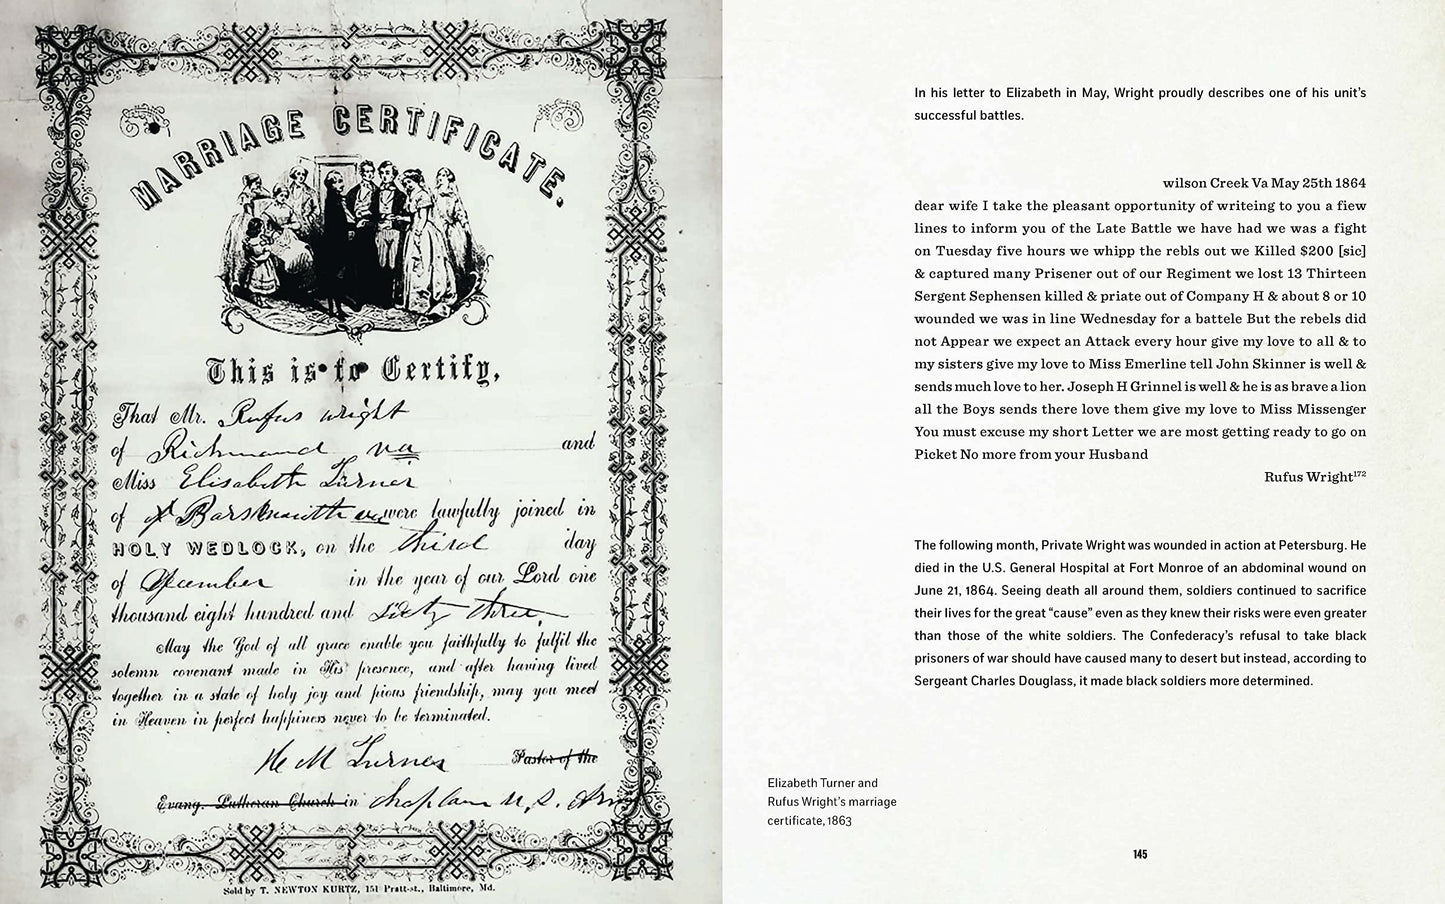 MARRIAGE CERTIFICATE.
This is to Certify,
That Mr. Rufus wright
of Richmond va and
Miss Elisabeth Turner
of were lawfully joined in
HOLY WEDLOCK, on the third day
of in the year of our Lord one
thousand eight hundred and sixty three,
May the God of all grace enable you faithfully to fulfil the
solemn covenant made in His presence, and after having lived
together in a state of holy joy and pious friendship, may you meet
in Heaven in perfect happiness never to be terminated.
H M Turner Pastor of the
Evang. Lutheran Church in chaplain U, S. Army
Sold by T. NEWTON KURTZ, 151 Pratt-st., Baltimore, Md.
In his letter to Elizabeth in May, Wright proudly describes one of his unit’s
successful battles.
wilson Creek Va May 25th 1864
dear wife I take the pleasant opportunity of writeing to you a fiew
lines to inform you of the Late Battle we have had we was a fight
on Tuesday five hours we whipp the rebls out we Killed $200 [sic]
& captured many Prisener out of our Regiment we lost 13 Thirteen
Sergent Sephensen killed & priate out of Company H & about 8 or 10
wounded we was in line Wednesday for a battele But the rebels did
not Appear we expect an Attack every hour give my love to all & to
my sisters give my love to Miss Emerline tell John Skinner is well &
sends much love to her. Joseph H Grinnel is well & he is as brave a lion
all the Boys sends there love them give my love to Miss Missenger
You must excuse my short Letter we are most getting ready to go on
Picket No more from your Husband
Rufus Wright172
The following month, Private Wright was wounded in action at Petersburg. He
died in the U.S. General Hospital at Fort Monroe of an abdominal wound on
June 21, 1864. Seeing death all around them, soldiers continued to sacrifice
their lives for the great “cause” even as they knew their risks were even greater
than those of the white soldiers. The Confederacy’s refusal to take black
prisoners of war should have caused many to desert but instead, according to
Sergeant Charles Douglass, it made black soldiers more determined.
Elizabeth Turner and
Rufus Wright’s marriage
certificate, 1863
145